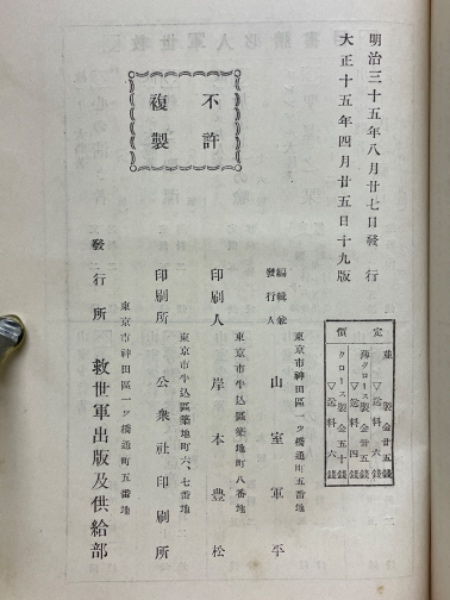 明治三十五年八月廿七日發行
大正十五年四月廿五日十九版
定價
並製金廿五錢
▽送料六錢
薄クロース製金廿五錢
▽送料四錢
クロース製金五十錢
▽送料六錢
不許
複製
東京市神田區一ツ橋通町五番地
編輯兼
發行人
山室軍平
東京市牛込區築地町八番地
印刷人 岸本豊松
東京市牛込區築地町六、七番地
印刷所 公衆社印刷所
東京市神田區一ツ橋通町五番地
發行所 救世軍出版及供給部